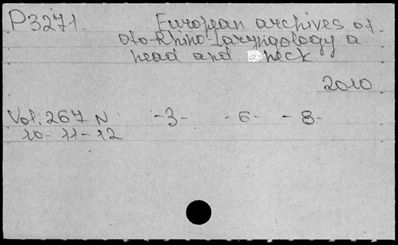 P3271. European archives of
oto-Rhino-Laryngology a
head and neck
2010
Vol. 267 N -3- -6- -8-
10-11-12